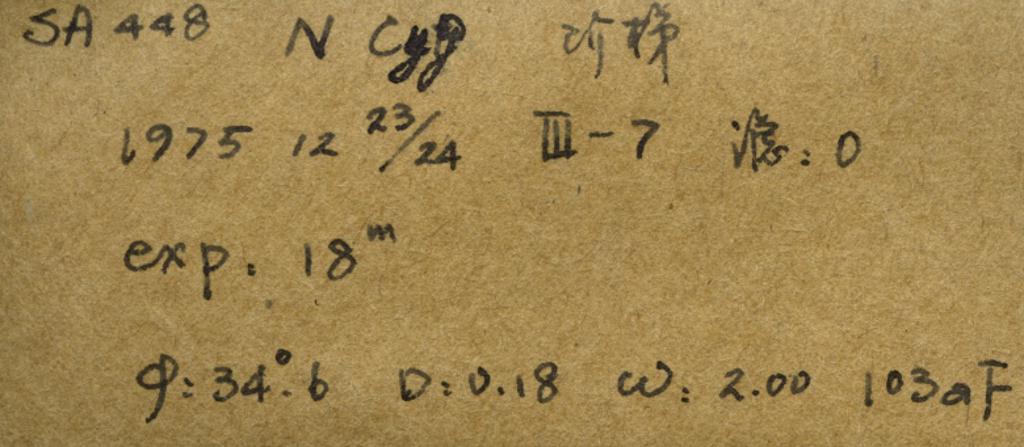 SA 448 N Cyg 阶梯
1975 12 23/24 III-7 滤: 0
exp. 18ᵐ
φ: 34°.6 D: 0.18 ω: 2.00 103aF